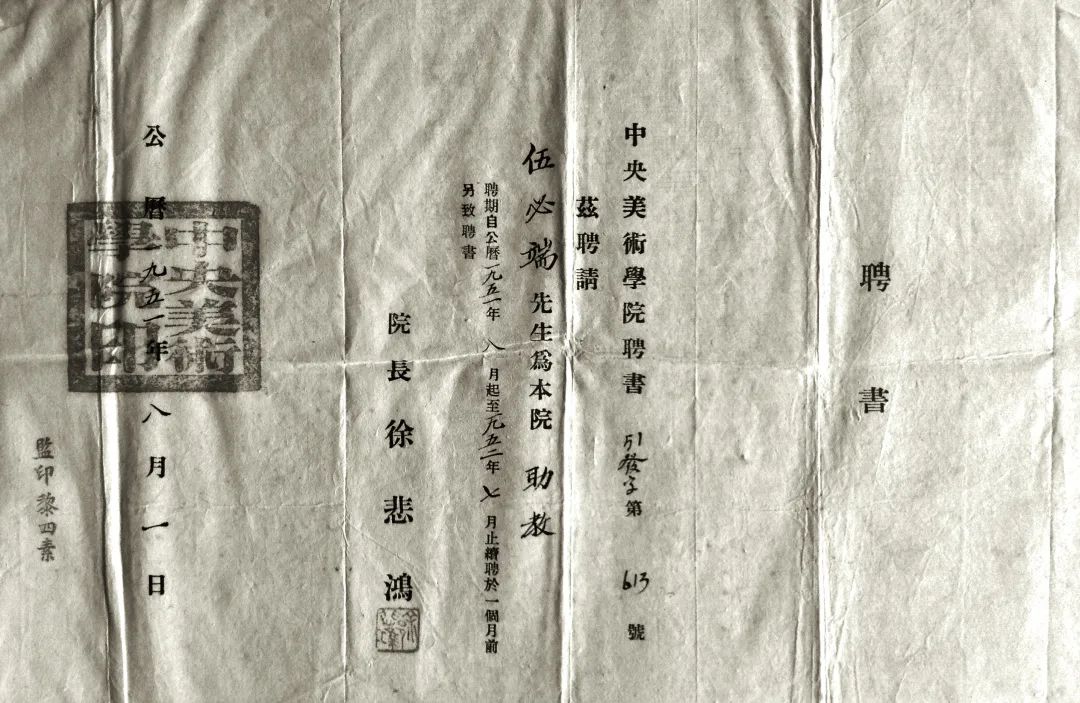 聘書
中央美術學院聘書 引發字第 613 號
茲聘請
伍必端先生爲本院 助教
聘期自公曆一九五一年 八 月起至一九五二年 七 月止續聘於一個月前
另致聘書
院長 徐悲鴻
公曆一九五一年八月一日
中央美術
學院印
監印黎四素